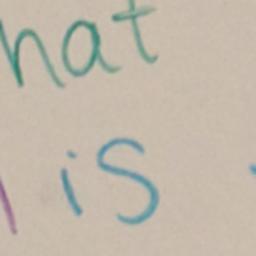 hat
is